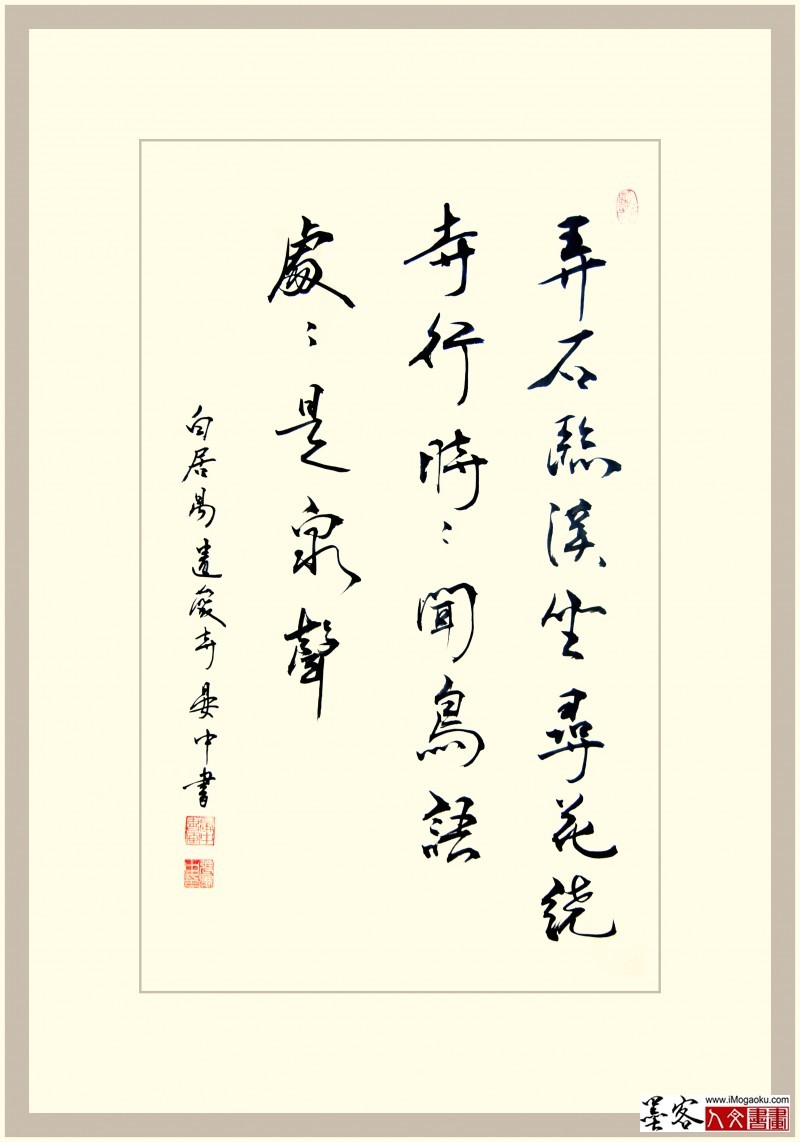 弄石臨溪坐尋花繞
寺行時〻聞鳥語
處〻是泉聲
白居易遺愛寺 晏中書
墨客
www.iMogaoku.com
人文書畫